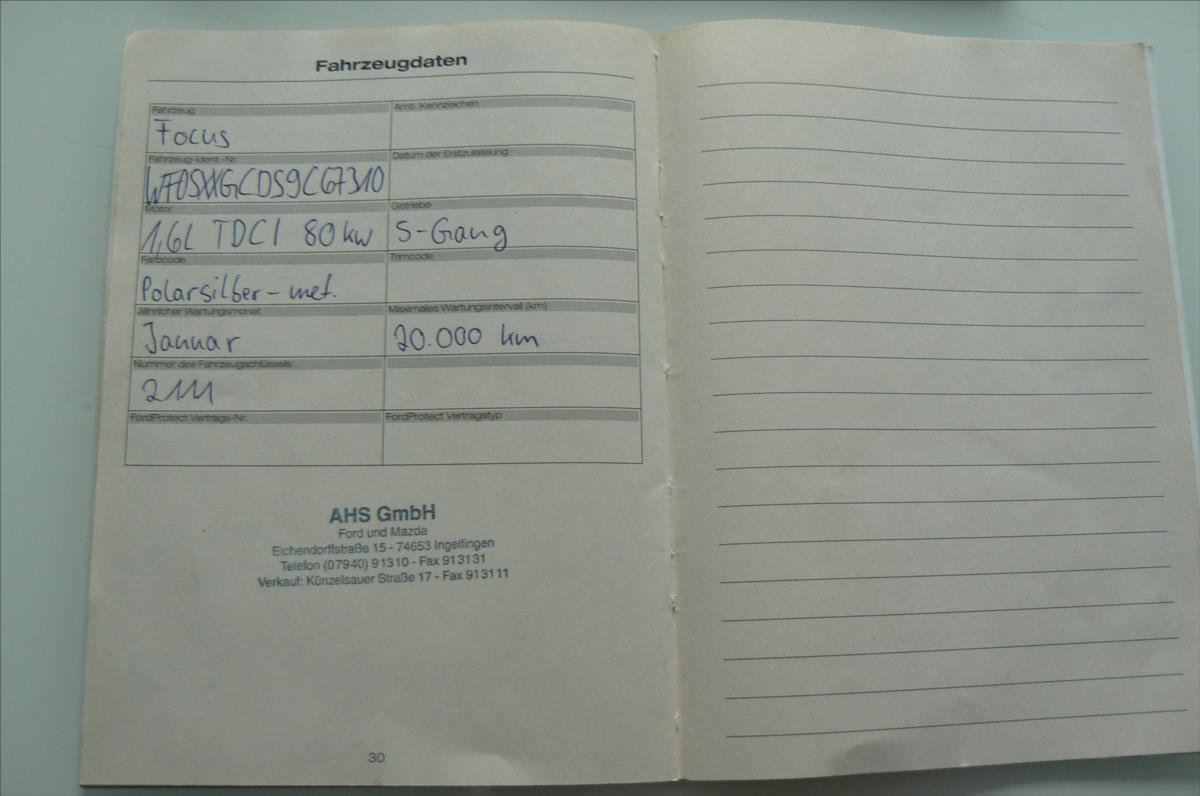 Fahrzeugdaten
Fahrzeug Amtl. Kennzeichen
Focus
Fahrzeug-Ident.-Nr. Datum der Erstzulassung
WF0SXXGCDS9C67310
Motor Getriebe
1,6L TDCI 80 kw 5-Gang
Farbcode Trimcode
Polarsilber-met.
Jährlicher Wartungsmonat Maximales Wartungsintervall (km)
Januar 20.000 km
Nummer des Fahrzeugschlüssels
2111
FordProtect Vertrags-Nr. FordProtect Vertragstyp
AHS GmbH
Ford und Mazda
Eichendorffstraße 15 - 74653 Ingelfingen
Telefon (07940) 91310 - Fax 913131
Verkauf: Künzelsauer Straße 17 - Fax 913111
30